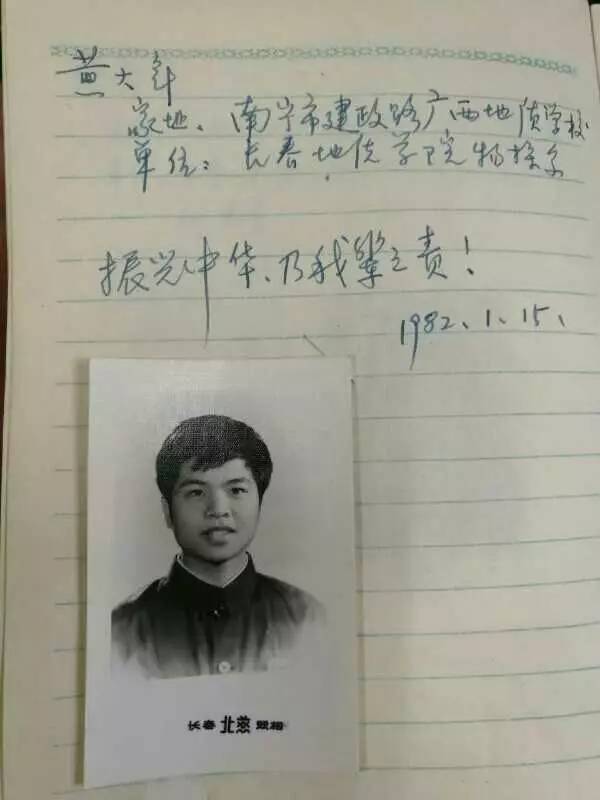 黄大年
家址：南宁市建政路广西地质学校
单位：长春地质学院物探系
振兴中华、乃我辈之责！
1982.1.15.
长春 照相